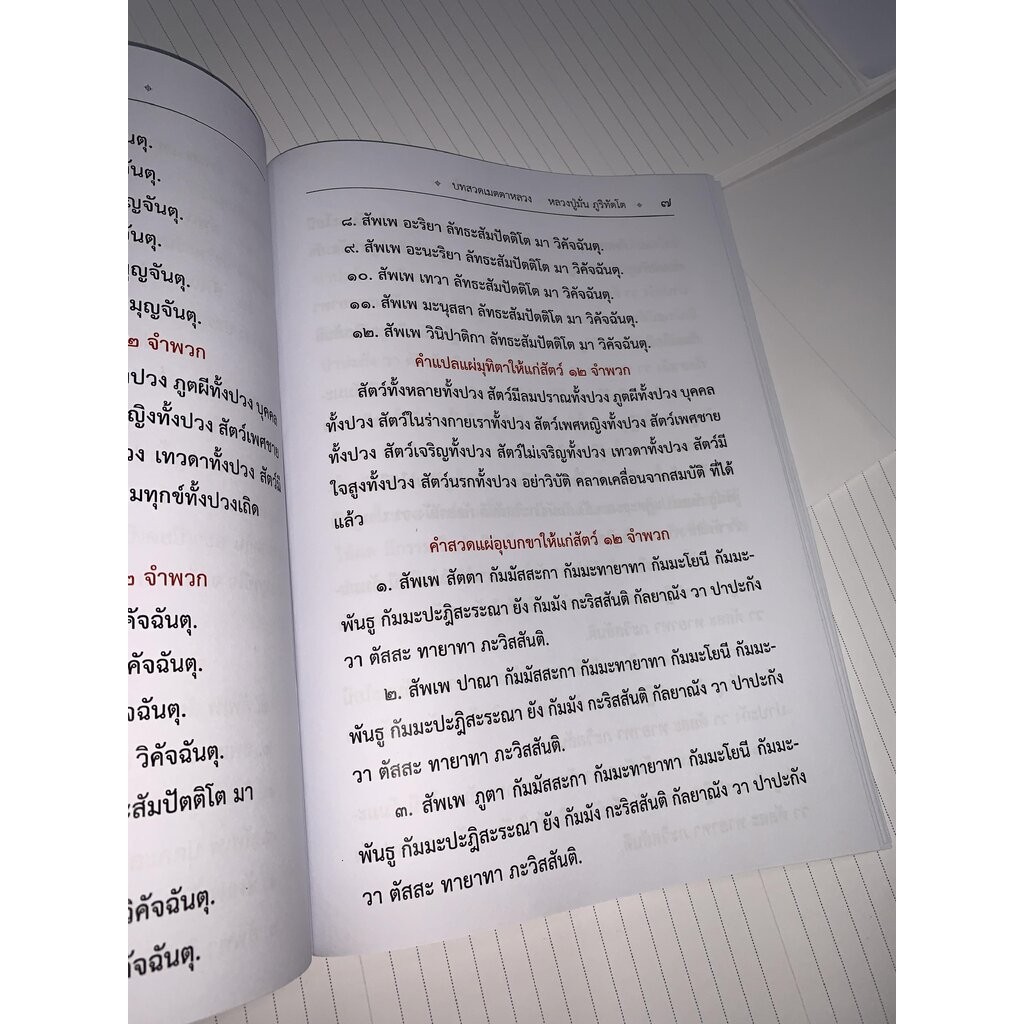 นตุ.
ันตุ.
ญจันตุ.
ันตุ.
ญจันตุ.
มุญจันตุ.
๒ จำพวก
ปวง ภูตผีทั้งปวง บุคคล
ญิงทั้งปวง สัตว์เพศชาย
วง เทวดาทั้งปวง สัตว์มี
มทุกข์ทั้งปวงเถิด
๒ จำพวก
คัจฉันตุ.
คัจฉันตุ.
จฉันตุ.
วิคัจฉันตุ.
ะสัมปัตติโต มา
วิคัจฉันตุ.
คัจฉันตุ.
บทสวดเมตตาหลวง หลวงปู่มั่น ภูริทัตโต ๗
๘. สัพเพ อะริยา ลัทธะสัมปัตติโต มา วิคัจฉันตุ.
๙. สัพเพ อะนะริยา ลัทธะสัมปัตติโต มา วิคัจฉันตุ.
๑๐. สัพเพ เทวา ลัทธะสัมปัตติโต มา วิคัจฉันตุ.
๑๑. สัพเพ มะนุสสา ลัทธะสัมปัตติโต มา วิคัจฉันตุ.
๑๒. สัพเพ วินิปาติกา ลัทธะสัมปัตติโต มา วิคัจฉันตุ.
คำแปลแผ่มุทิตาให้แก่สัตว์ ๑๒ จำพวก
สัตว์ทั้งหลายทั้งปวง สัตว์มีลมปราณทั้งปวง ภูตผีทั้งปวง บุคคล
ทั้งปวง สัตว์ในร่างกายเราทั้งปวง สัตว์เพศหญิงทั้งปวง สัตว์เพศชาย
ทั้งปวง สัตว์เจริญทั้งปวง สัตว์ไม่เจริญทั้งปวง เทวดาทั้งปวง สัตว์มี
ใจสูงทั้งปวง สัตว์นรกทั้งปวง อย่าวิบัติ คลาดเคลื่อนจากสมบัติ ที่ได้
แล้ว
คำสวดแผ่อุเบกขาให้แก่สัตว์ ๑๒ จำพวก
๑. สัพเพ สัตตา กัมมัสสะกา กัมมะทายาทา กัมมะโยนี กัมมะ-
พันธู กัมมะปะฎิสะระณา ยัง กัมมัง กะริสสันติ กัลยาณัง วา ปาปะกัง
วา ตัสสะ ทายาทา ภะวิสสันติ.
๒. สัพเพ ปาณา กัมมัสสะกา กัมมะทายาทา กัมมะโยนี กัมมะ-
พันธู กัมมะปะฎิสะระณา ยัง กัมมัง กะริสสันติ กัลยาณัง วา ปาปะกัง
วา ตัสสะ ทายาทา ภะวิสสันติ.
๓. สัพเพ ภูตา กัมมัสสะกา กัมมะทายาทา กัมมะโยนี กัมมะ-
พันธู กัมมะปะฎิสะระณา ยัง กัมมัง กะริสสันติ กัลยาณัง วา ปาปะกัง
วา ตัสสะ ทายาทา ภะวิสสันติ.